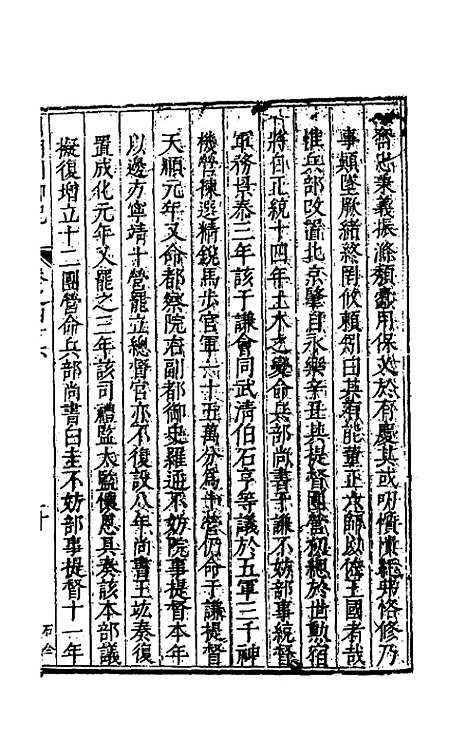 奮忠秉義振滌頹蠹用保乂於有慶其或叨憤憒經邦恪修乃
事顛墜厥緒終罔攸賴矧曰其有能董正六師以佐王國者哉
惟兵部改置北京肇自永樂辛丑其提督團營初總於世勳宿
將自正統十四年土木之變命兵部尚書于謙不妨部事統督
軍務景泰三年該于謙會同武清伯石亨等議於五軍三千神
機營揀選精銳馬步官軍六十五萬分為十營仍命于謙提督
天順元年又命都察院右副都御史羅通不妨院事提督本年
以邊方寧靖十營罷立總督官亦不復設八年尚書王竑奏復
置成化元年又罷之三年該司禮監太監懷恩具奏該本部議
擬復增立十二團營命兵部尚書白圭不妨部事提督十一年